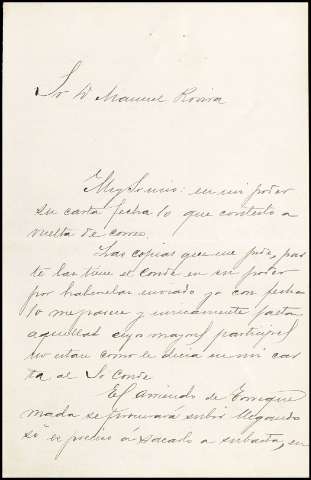 Sr D Manuel Rovira
Muy Sr mio: en mi poder
su carta fecha 10 que contesto a
vuelta de correo.
Las copias que me pide, par
te las tiene el Conde en su poder
por habérselas enviado yo con fecha
10 me parece y unicamente faltan
aquellas cuyo mayor
no están como le decia en mi car
ta al Sr Conde.
El Arriendo de Torrigue
mada se procurará subir llegando
si es preciso á sacarlo a subasta, en